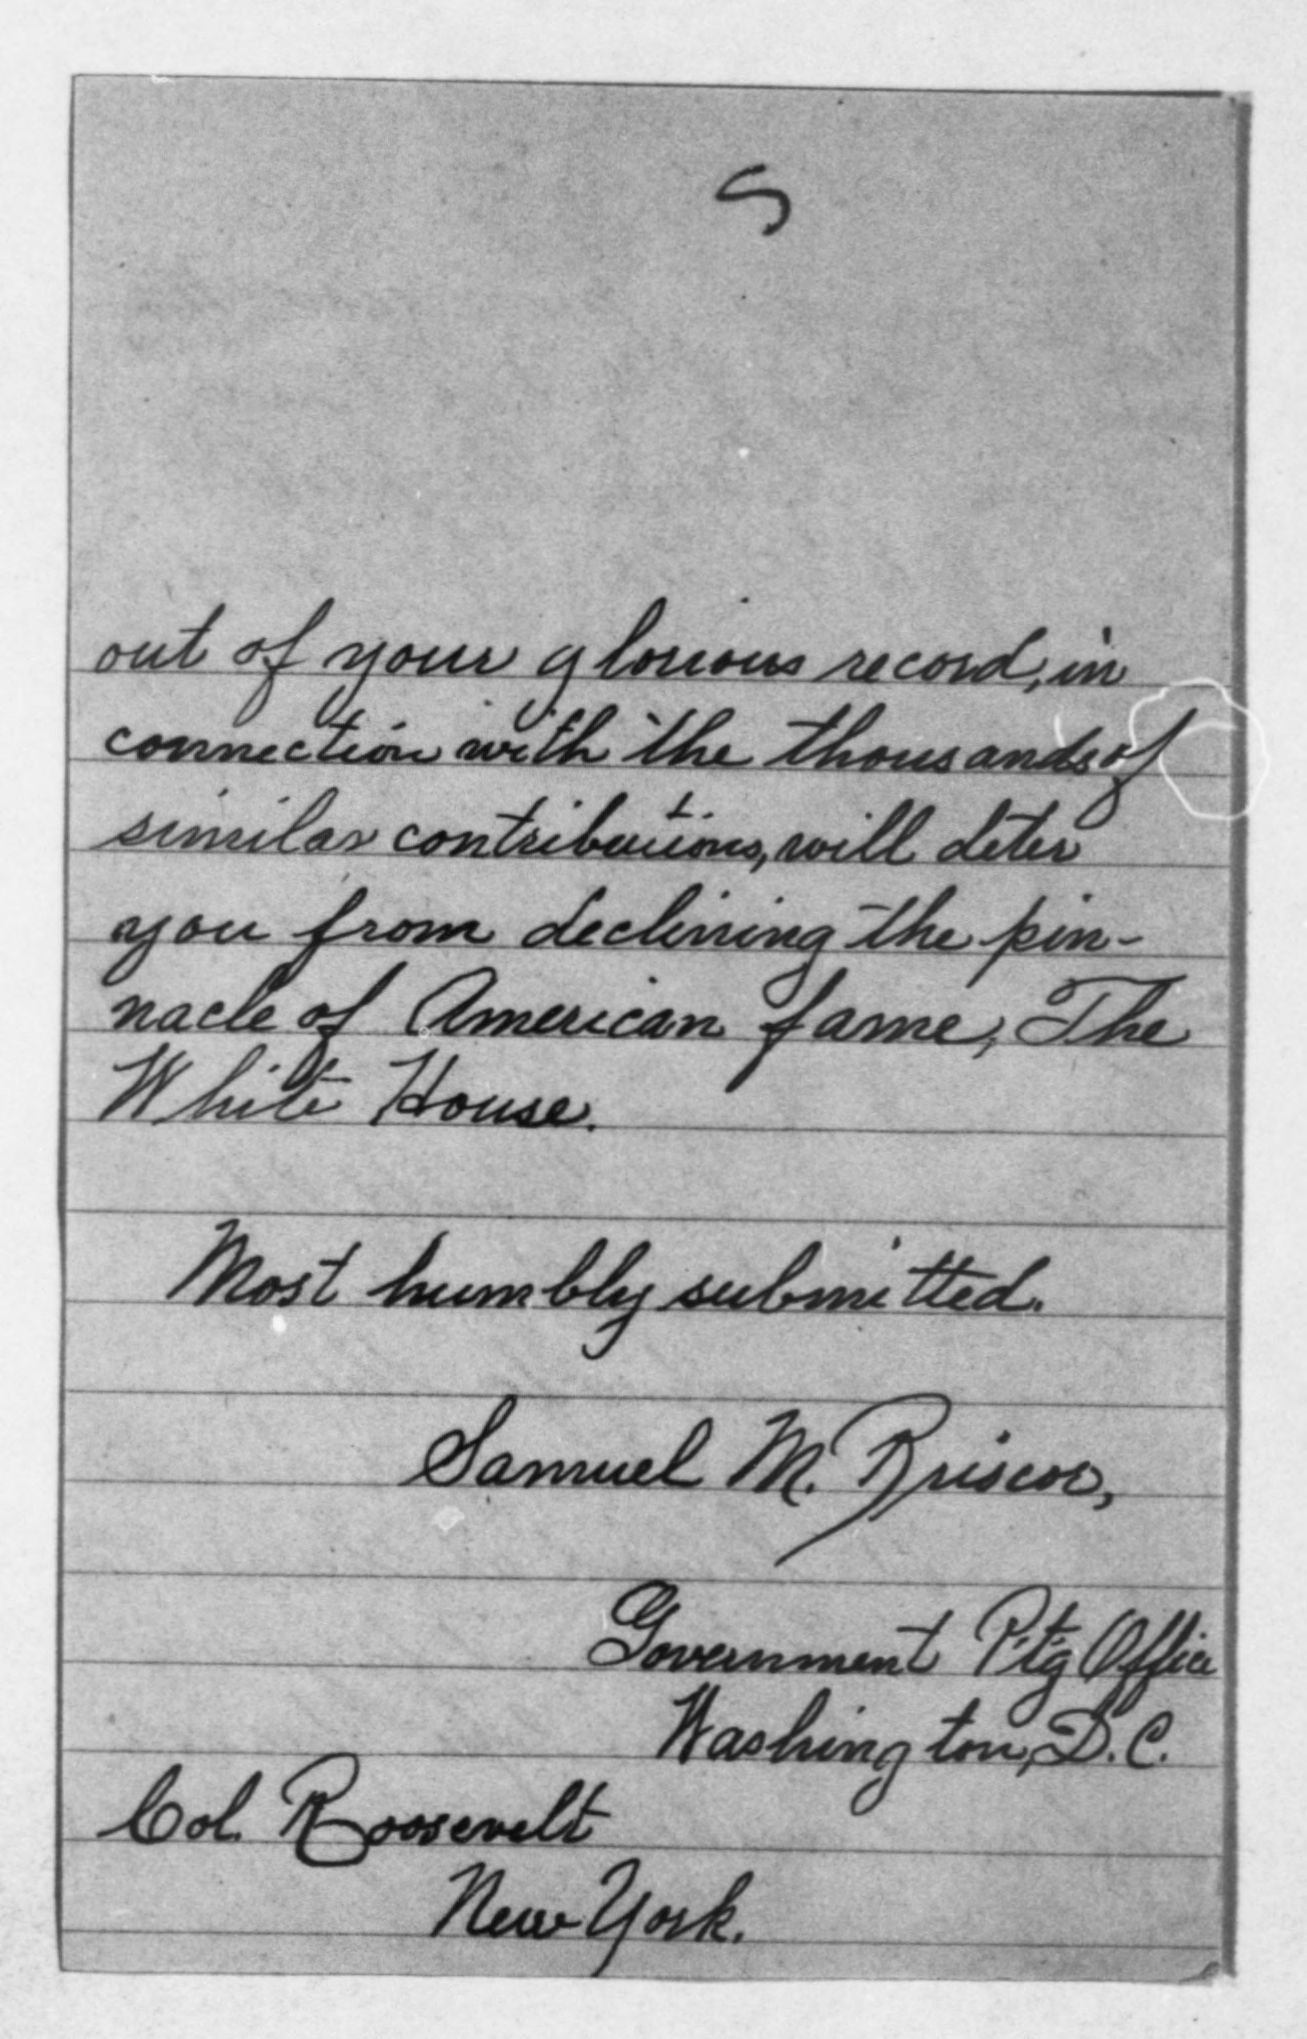 5
out of your glorious record, in
connection with the thousands of
similar contributions, will deter
you from declining the pin-
nacle of American fame, The
White House.
Most humbly submitted.
Samuel M. Briscoe,
Government Pt'g Office
Washington, D.C.
Col. Roosevelt
New York.